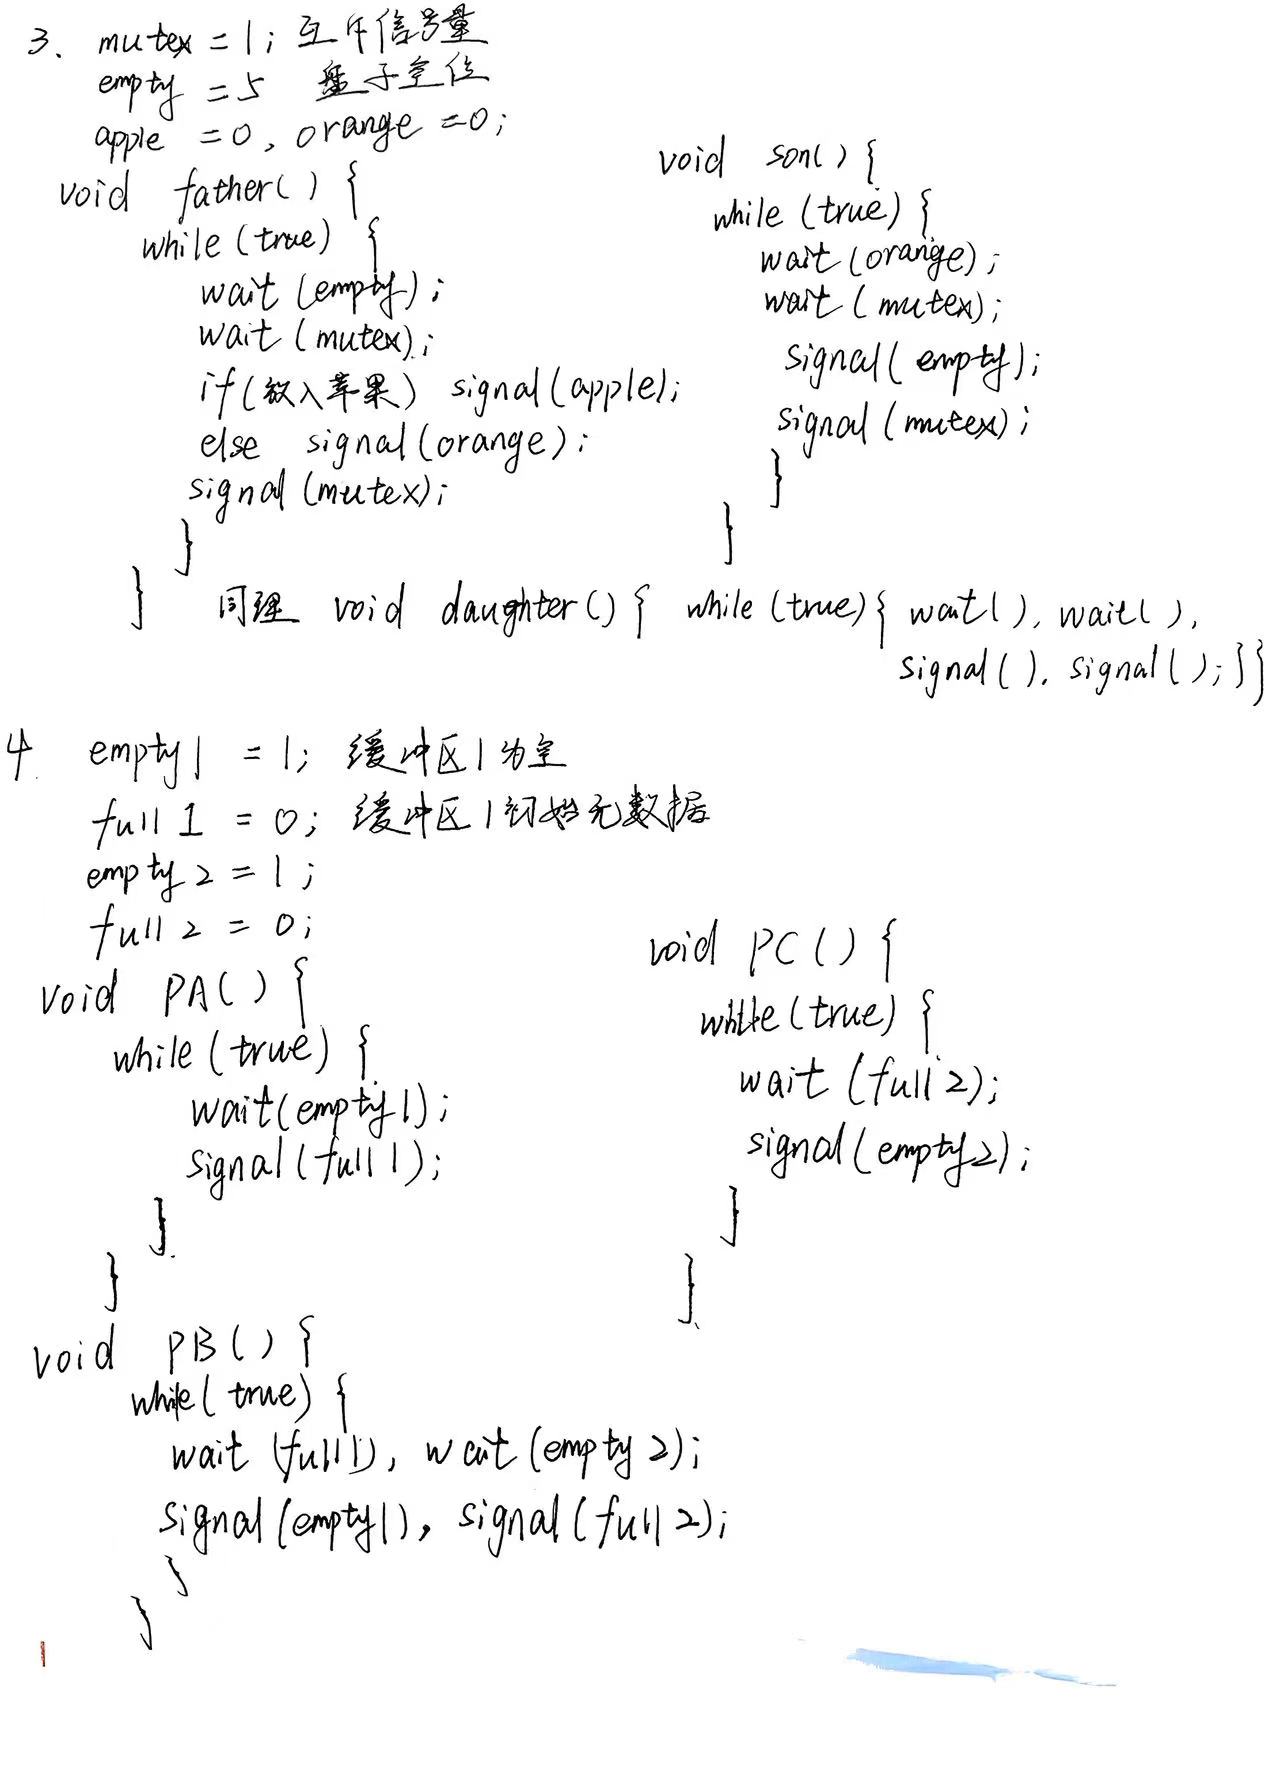 3. mutex = 1; 互斥信号量
empty = 5 盘子空位
apple = 0, orange = 0;
void father() {
while (true) {
wait (empty);
wait (mutex);
if (放入苹果) signal (apple);
else signal (orange);
signal (mutex);
}
}
void son() {
while (true) {
wait (orange);
wait (mutex);
signal (empty);
signal (mutex);
}
}
同理 void daughter() { while (true) { wait(), wait(),
signal(), signal(); } }
4. empty1 = 1; 缓冲区1为空
full1 = 0; 缓冲区1初始无数据
empty2 = 1;
full2 = 0;
void PA() {
while (true) {
wait (empty1);
signal (full1);
}
}
void PC() {
while (true) {
wait (full2);
signal (empty2);
}
}
void PB() {
while (true) {
wait (full1), wait (empty2);
signal (empty1), signal (full2);
}
}